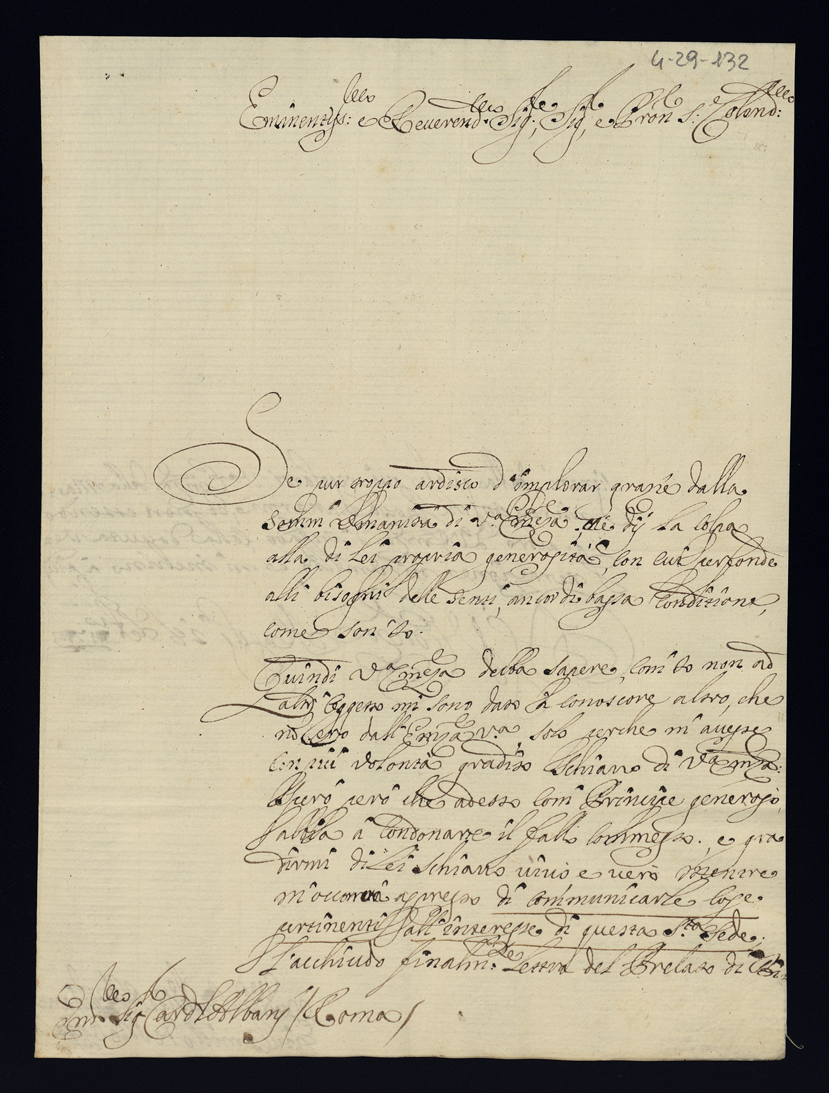 4-29-132
Eminentiss:mo e Reverend:mo Sig:re, Sig:re e Pron S:e Colend:mo
Se pur troppo ardisco d'implorar grazie dalla
somm Umanità di V.a Em.za die dij la colpa
alla di Lei propria generosità, con cui perfonde
alli bisogni delle Genti ancor di bassa Conditione,
come son io.
Quindi V.a Em.za debba sapere, com'io non ad
altr' oggetto mi sono dato à conoscere altro, che
Cervo dall'Em.za V.a, solo perche m'avesse
con più volontà gradito Schiavo di V.a Em.za:
Spero però che adesso com' Principe generoso,
habbia à condonare il fallo commesso, e gra
dirmi di Lei Schiavo vivo e vero mentre
m'occorrerà appresso di communicarle cose
pertinenti all'interesse di questa S.ta Sede.
L'acchiudo finalm.te Lettera del Prelato di
Em:mo Sig:r Card:l Albani / Roma /